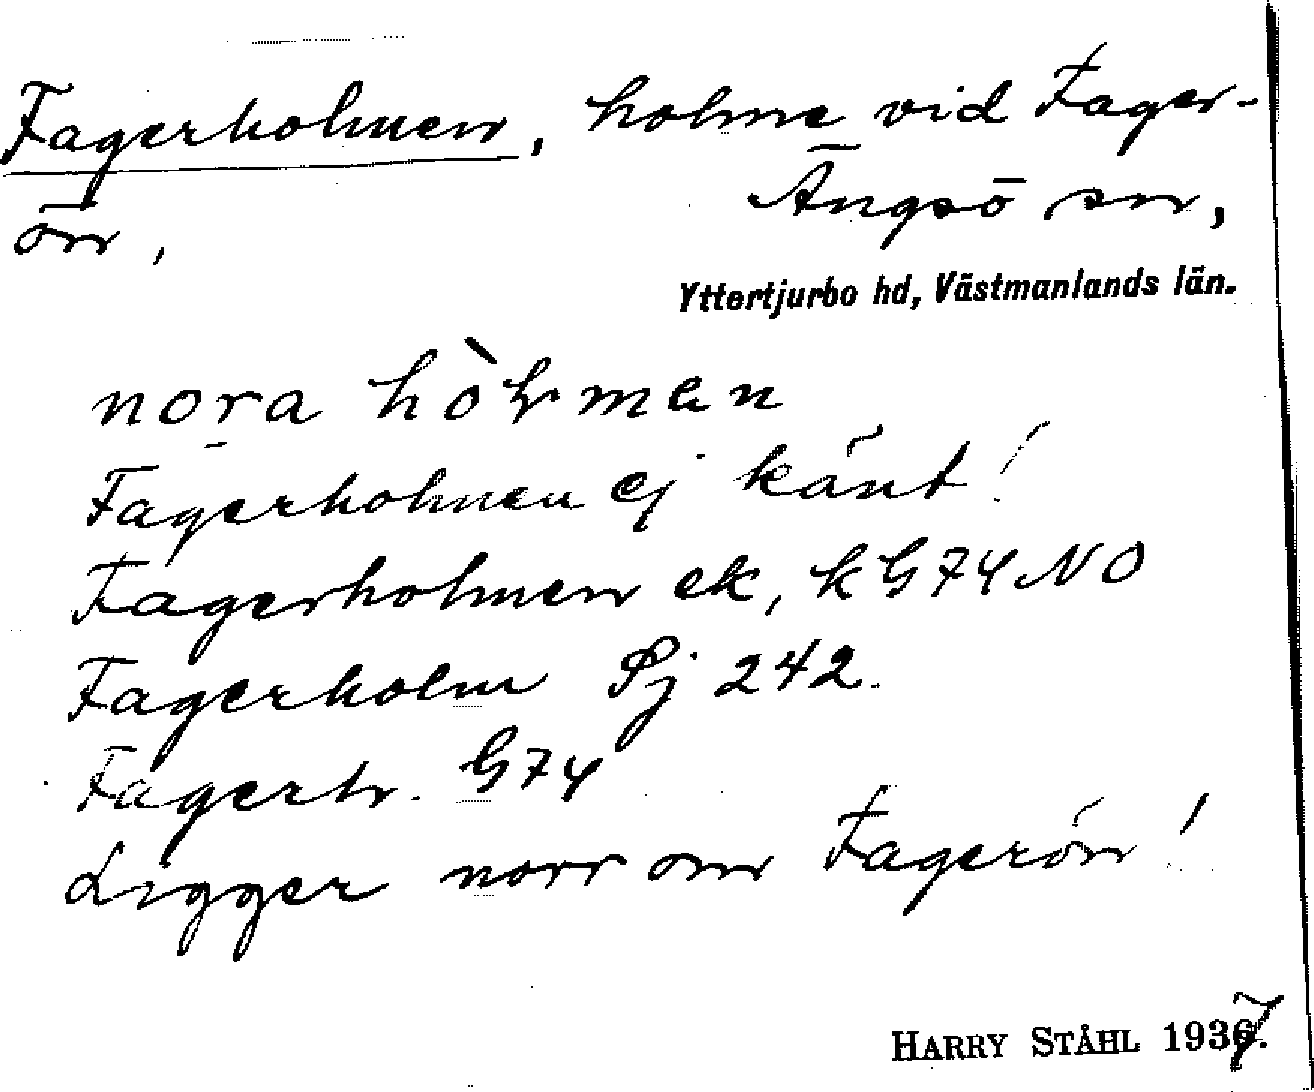 Fagerholmen, holme vid Fager-
ön,
Ängsö sn,
Yttertjurbo hd, Västmanlands län.
nora hòlmen
Fagerholmen ej känt!
Fagerholmen ek, k G74 NO
Fagerholm Sj 242.
Fagerh. G74
Ligger norr om Fagerön!
HARRY STÅHL 1937.